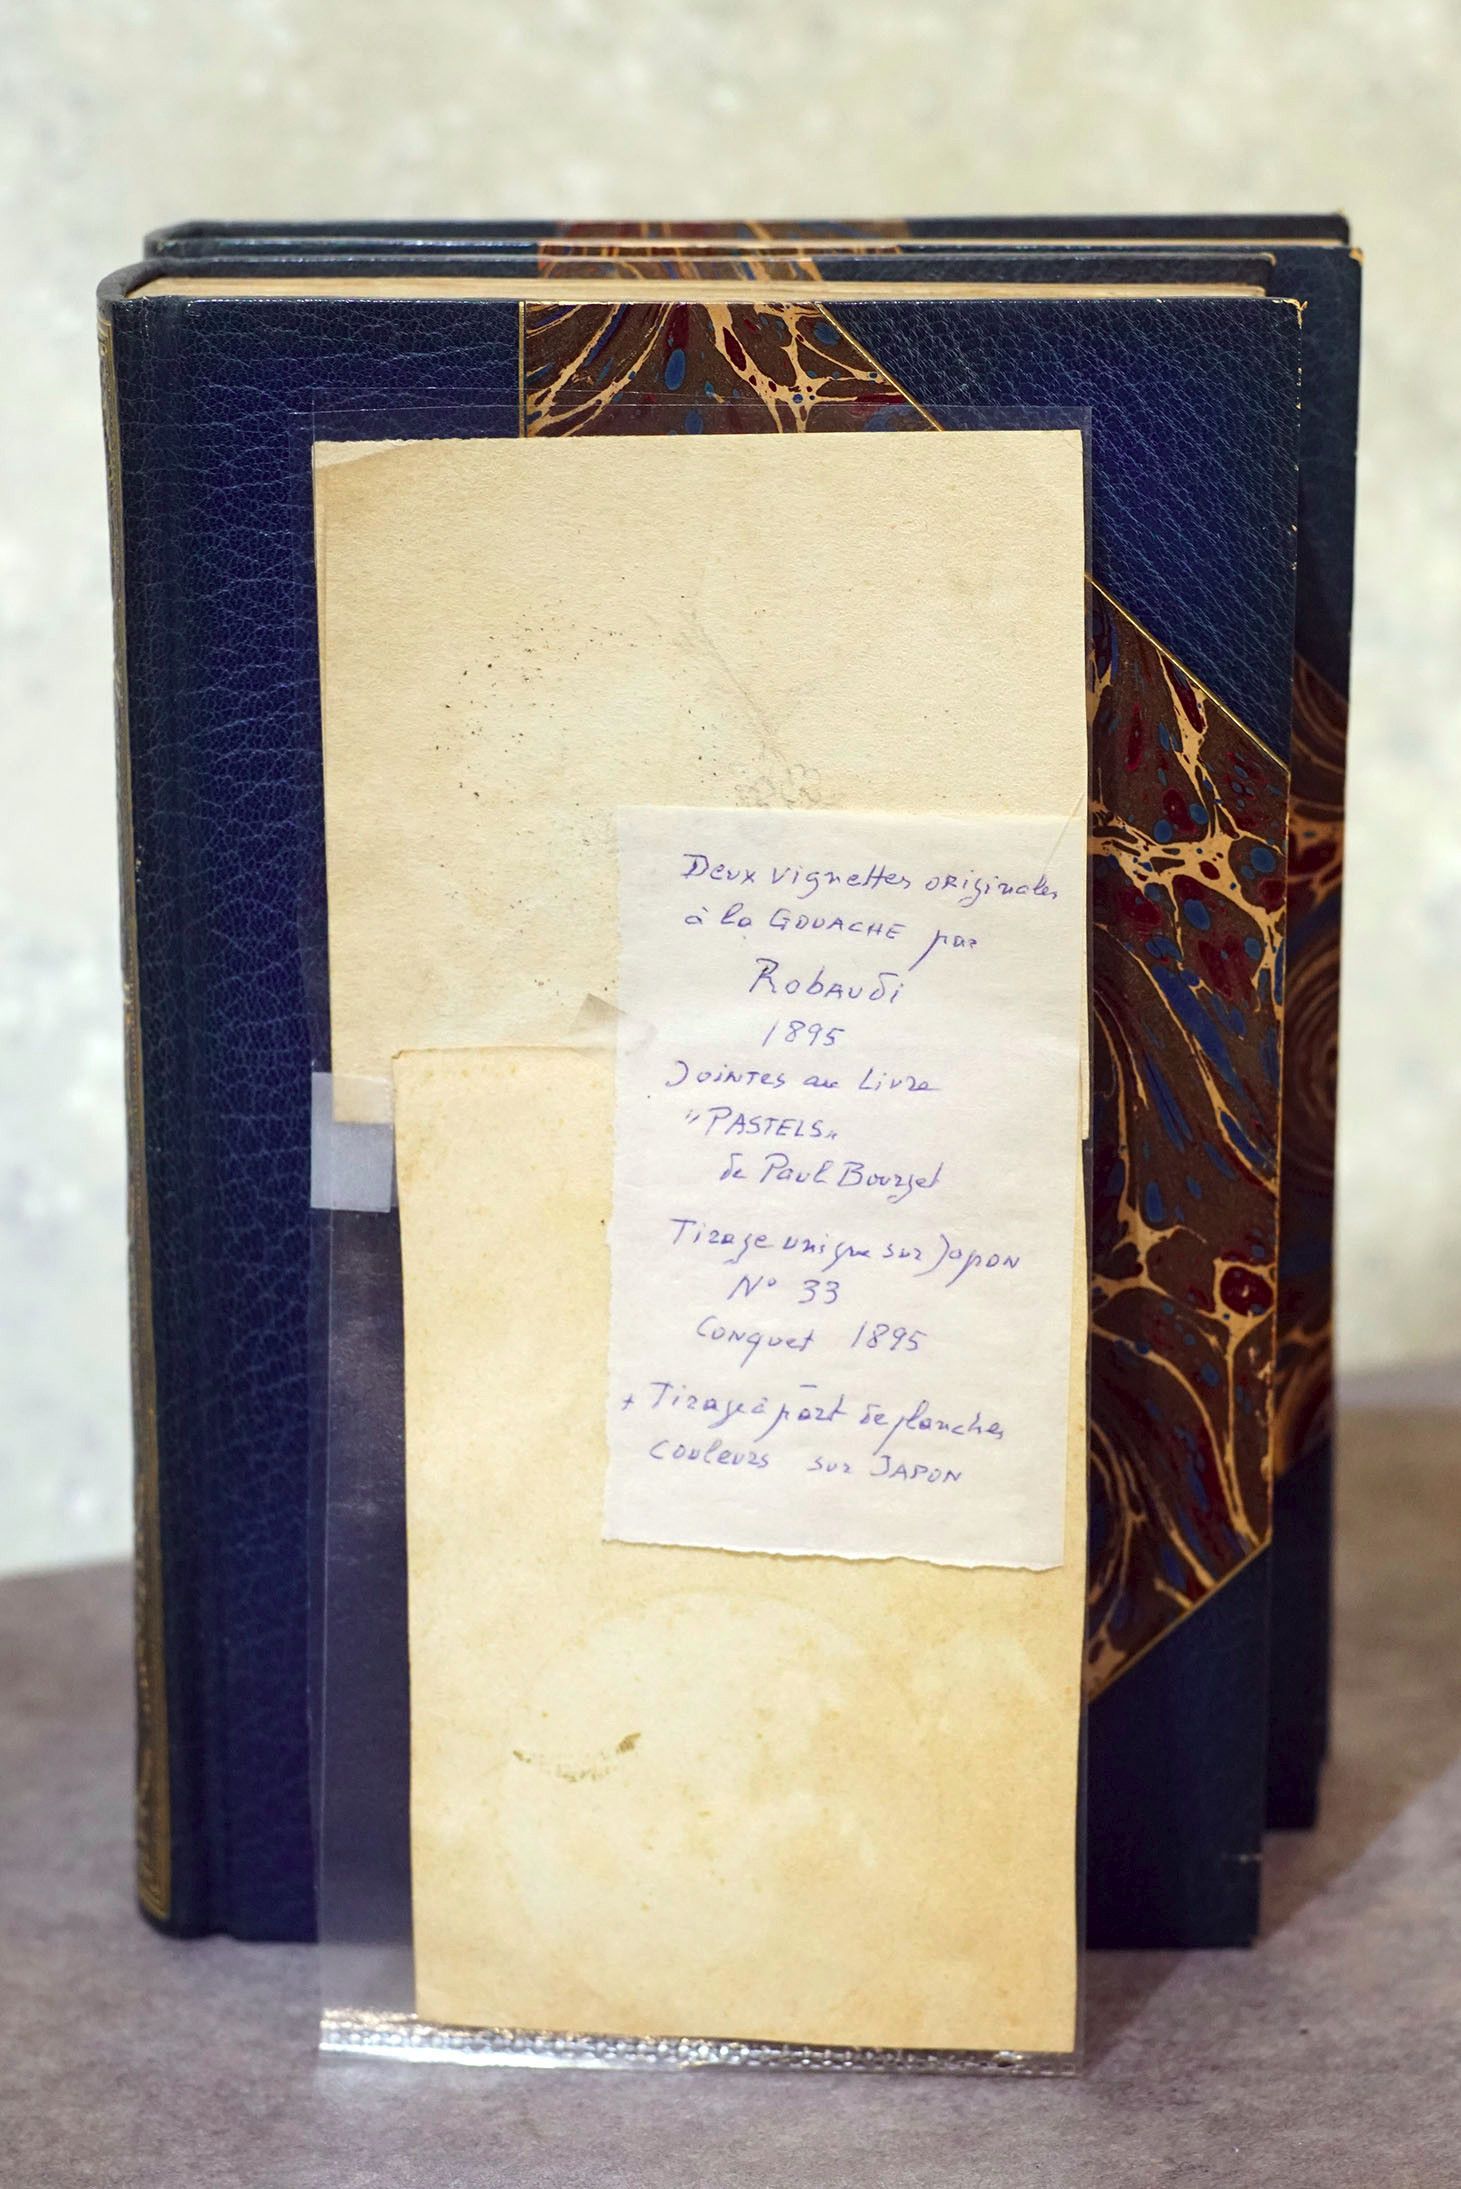 Deux vignettes originales
à la GOUACHE par
Robaudi
1895
Jointes au Livre
"PASTELS"
de Paul Bourget
Tirage unique sur Japon
N° 33
Conquet 1895
+ Tirage à part de planches
couleurs sur JAPON